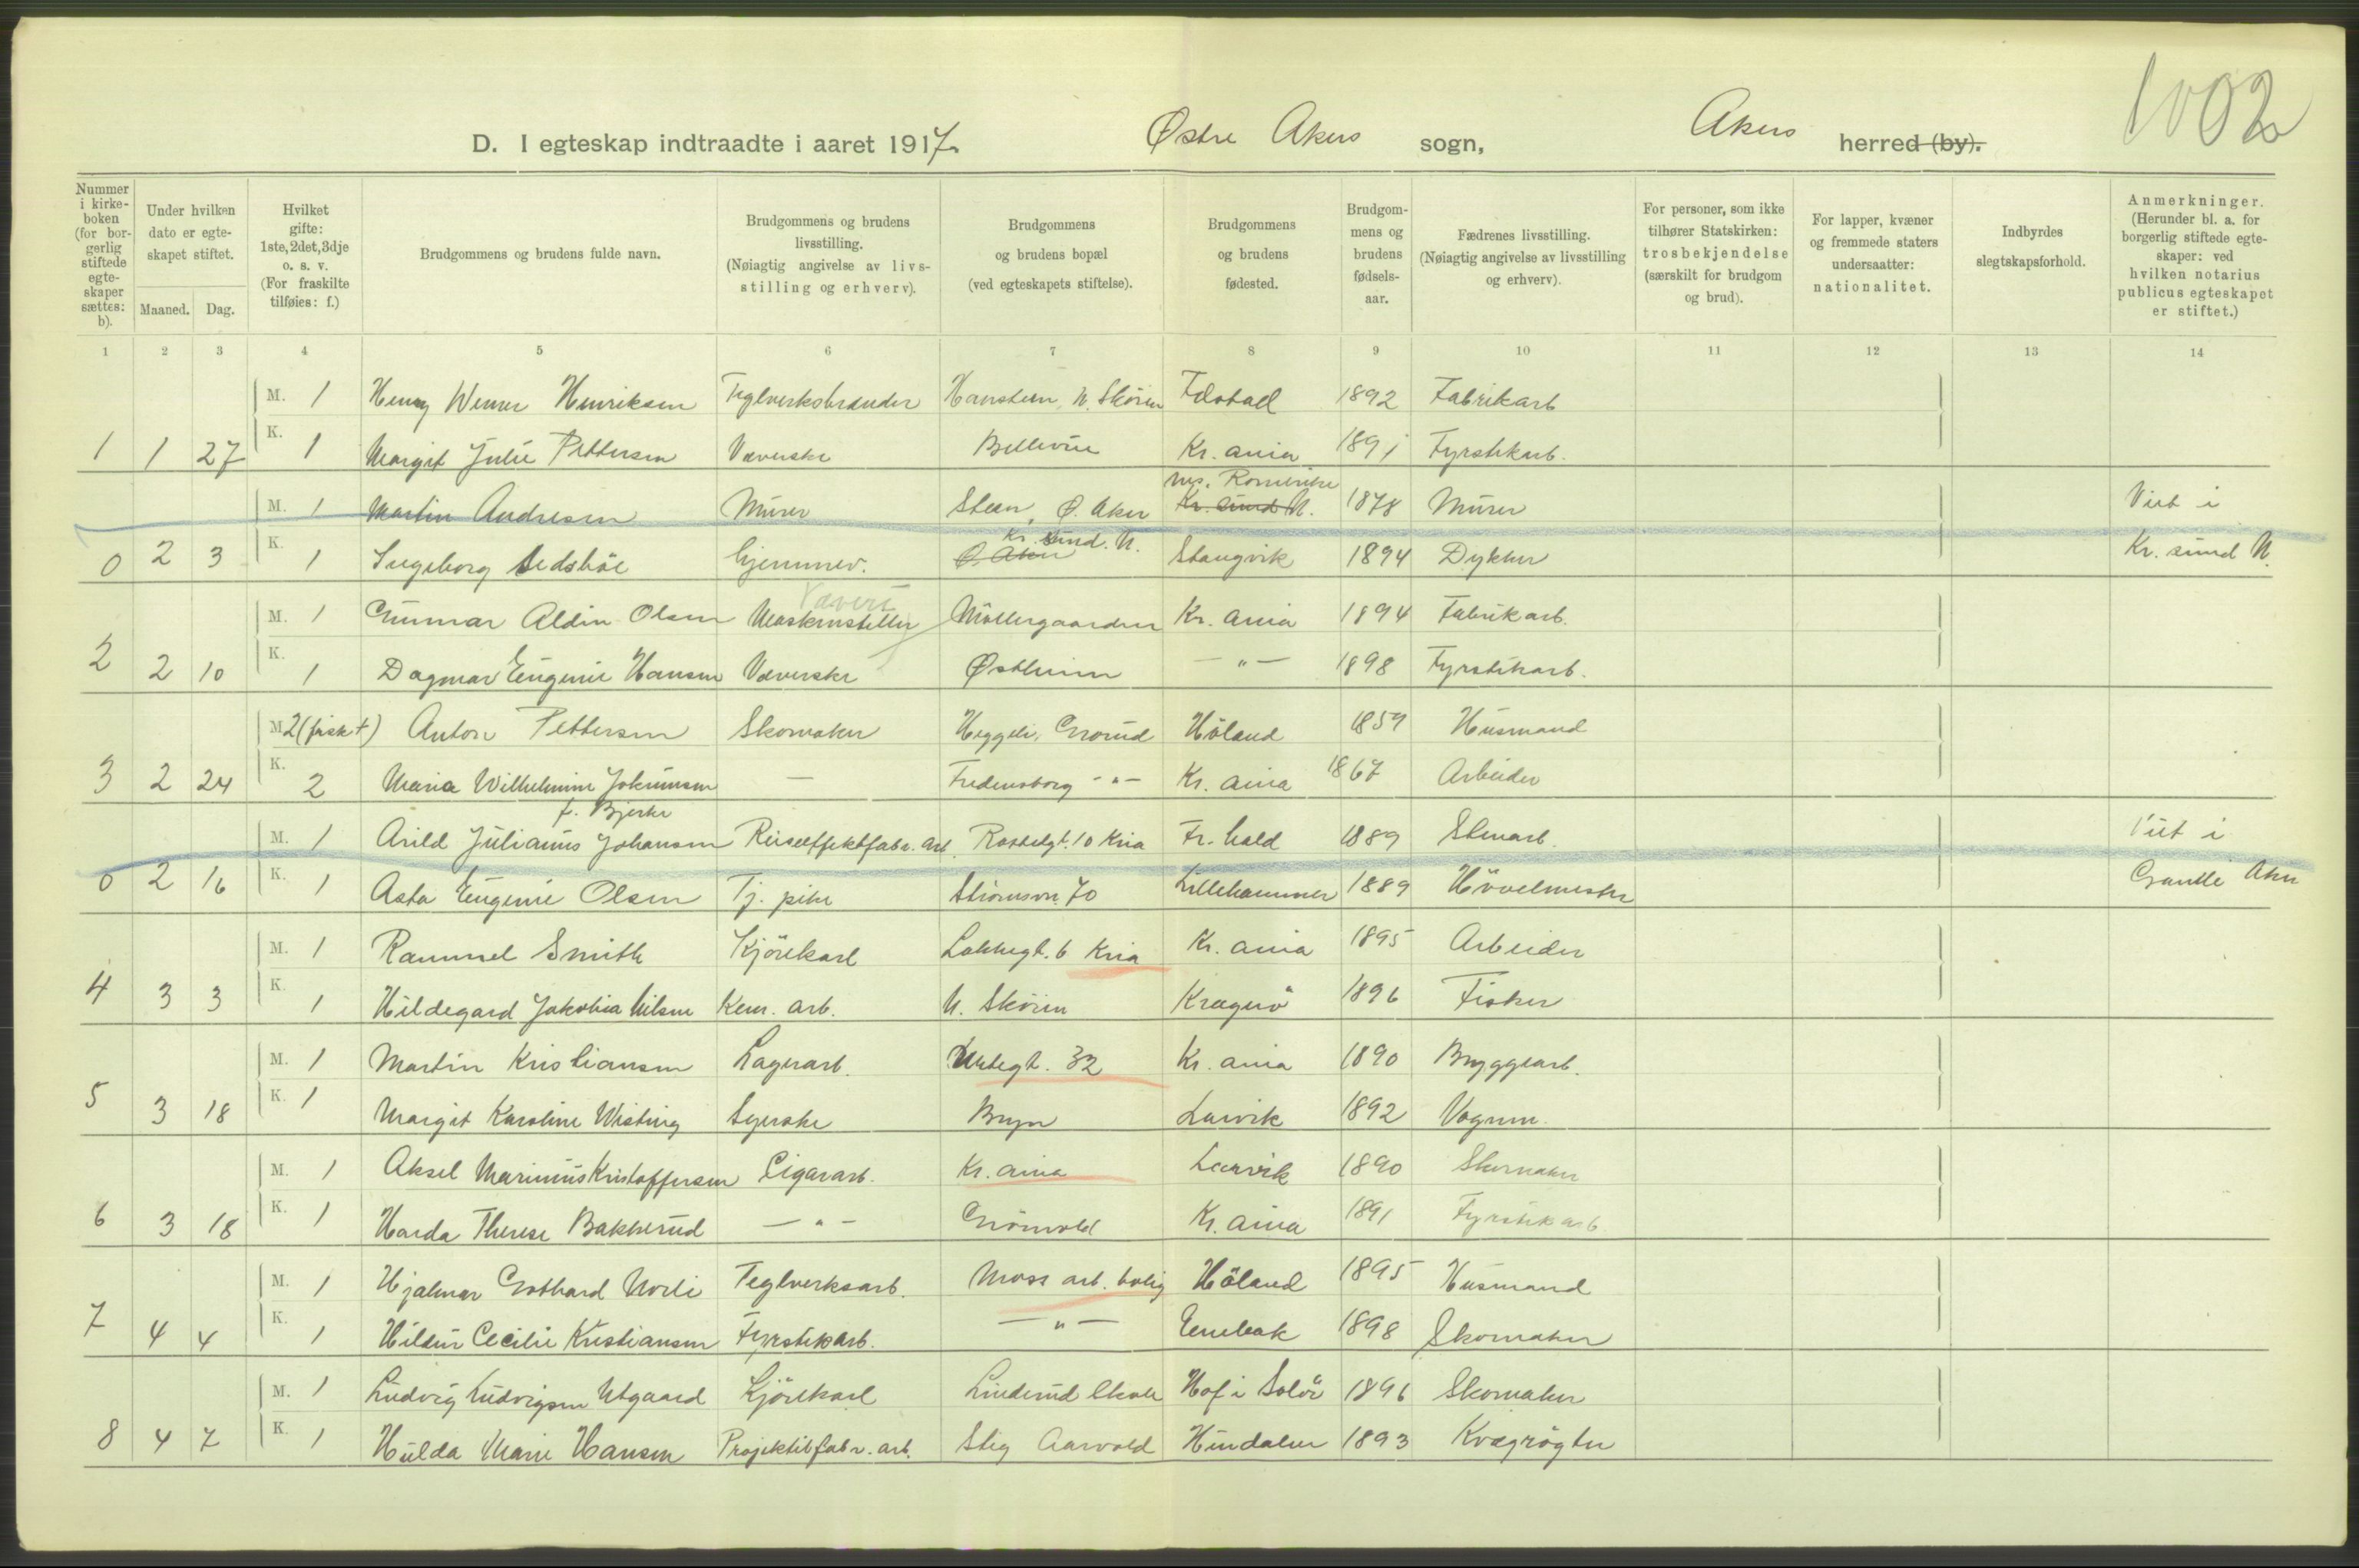 1002
D. I egteskap indtraadte i aaret 1917. Østre Akers sogn, Akers herred (by).
Nummer i kirkeboken (for borgerlig stiftede egteskaper sættes: b).
Under hvilken dato er egteskapet stiftet.
Maaned. Dag.
Hvilket gifte: 1ste, 2det, 3dje o. s. v. (For fraskilte tilføies: f.)
Brudgommens og brudens fulde navn.
Brudgommens og brudens livsstilling. (Nøiagtig angivelse av livsstilling og erhverv).
Brudgommens og brudens bopæl (ved egteskapets stiftelse).
Brudgommens og brudens fødested.
Brudgommens og brudens fødselsaar.
Fædrenes livsstilling. (Nøiagtig angivelse av livsstilling og erhverv).
For personer, som ikke tilhører Statskirken: trosbekjendelse (særskilt for brudgom og brud).
For lapper, kvæner og fremmede staters undersaatter: nationalitet.
Indbyrdes slegtskapsforhold.
Anmerkninger. (Herunder bl. a. for borgerlig stiftede egteskaper: ved hvilken notarius publicus egteskapet er stiftet.)
1 2 3 4 5 6 7 8 9 10 11 12 13 14
M. 1 Henry Werner Henriksen Teglverksbrænder Hanstein, N. Skøien 1892 Fabrikarb
1 1 27 K. 1 Margit Julie Pettersen Væverske Bellevue Kr.ania 1891 Fyrstikarb.
nes, Romerike
M. 1 Martin Andresen Murer Steen, Ø. Aker Kr.sund N. 1878 Murer Viet i
Kr.sund. N.
0 2 3 K. 1 Ingeborg Hjemmev. Ø. Aker Stangvik 1894 Dykker Kr.sund N.
Væveri
M. 1 Gunnar Aldin Olsen Maskinstiller Møllergaarden Kr.ania 1894 Fabrikarb.
2 2 10 K. 1 Dagmar Eugenie Hansen Væverske Østheim — " — 1898 Fyrstikarb.
M. 2 (fraskt) Anton Pettersen Skomaker Heggeli, Grorud Høland 1859 Husmand
3 2 24 K. 2 Maria Wilhelmine Jokumsen — Fredensborg - " - Kr.ania 1867 Arbeider
f. Bjerke
M. 1 Arild Julianus Johansen Reiseeffektfabr. arb. 10 Kria Fr.hald 1889 Stenarb. Viet i
0 2 16 K. 1 Asta Eugenie Olsen Tj. pike Strømsvn. 70 Lillehammer 1889 Høvelmester Gamle Aker
M. 1 Rammel Smith Kjørekarl Lakkegt. 6 Kria Kr.ania 1895 Arbeider
4 3 3 K. 1 Hildegard Jakobia Nilsen Kem. arb. N. Skøien Kragerø 1896 Fisker
M. 1 Martin Kristiansen Lagerarb. Urtegt. 32 Kr.ania 1890 Bryggearb.
5 3 18 K. 1 Margit Karoline Wisting Syerske Bryn Larvik 1892 Vognm.
M. 1 Aksel Marinius Kristoffersen Cigararb. Kr.ania Larvik 1890 Skomaker
6 3 18 K. 1 Harda Therese Bakkerud — " — Grønvold Kr.ania 1891 Fyrstikarb.
M. 1 Hjalmar Gothard Norli Teglverksarb. Moss arb. bolig Høland 1895 Husmand
7 4 4 K. 1 Hildur Cecilie Kristiansen Fyrstikarb. — " — Enebak 1898 Skomaker
M. 1 Ludvig Ludvigsen Utgaard Kjørekarl Linderud Skole Hof i Solør 1896 Skomaker
8 4 7 K. 1 Hulda Marie Hansen Projektilfabr. arb. Stig Aarvold 1893 Kvægrøgter